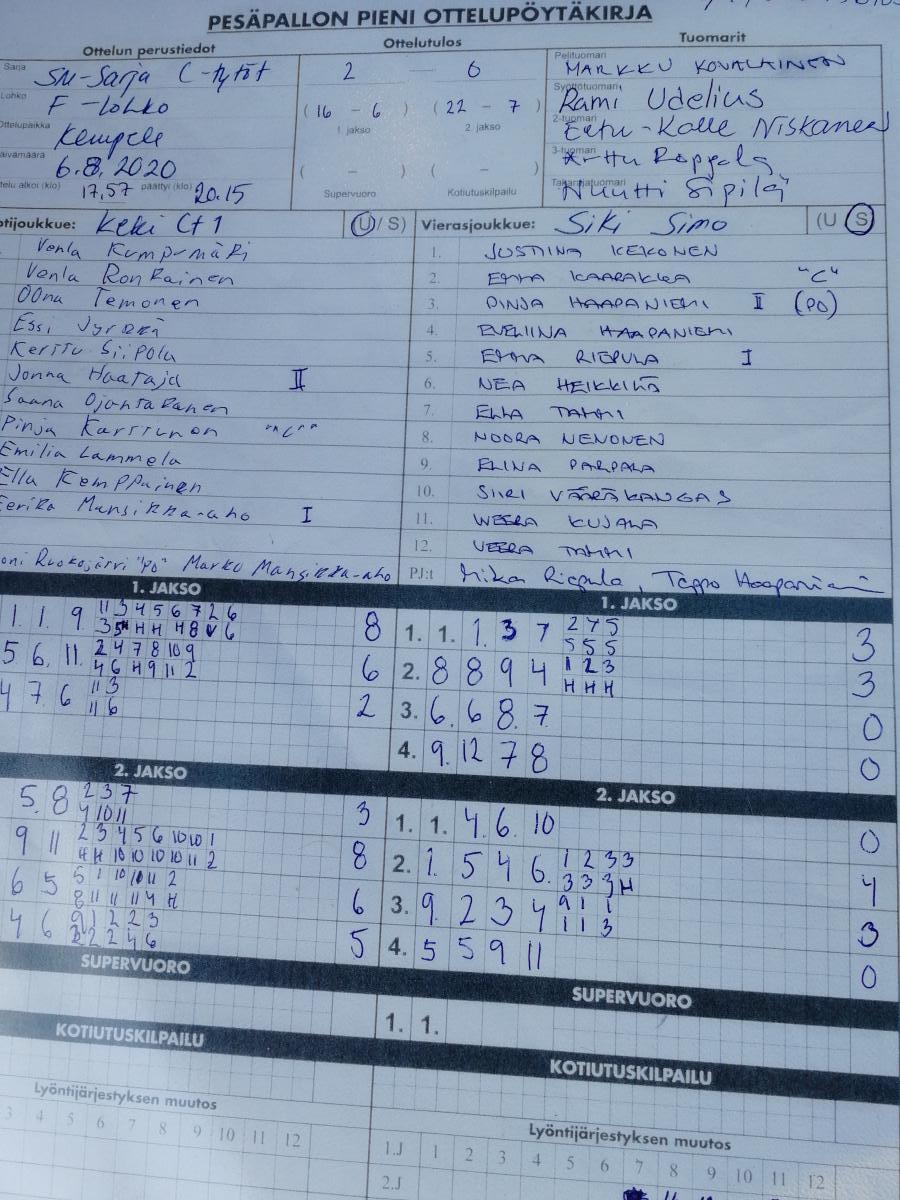 PESÄPALLON PIENI OTTELUPÖYTÄKIRJA
Ottelun perustiedot
Sarja SM-Sarja C-tytöt
Lohko F-lohko
Ottelupaikka Kempele
6.8.2020
17,57 päättyi (klo) 20.15
Ottelutulos
2 — 6
(16 - 6) (22 - 7)
1. jakso 2. jakso
( - ) ( - )
Supervuoro Kotiutuskilpailu
Tuomarit
Pelituomari MARKKU KOVALAINEN
Syöttötuomari Rami Udelius
2-tuomari Eetu-Kalle Niskanen
3-tuomari Arttu Reppela
Takarajatuomari Nuutti Sipilä
otijoukkue: Keki Ct1 (U / S)
Venla Kumpumäki
Venla Ronkainen
Oona Temonen
Essi
Kerttu Siipola
Jonna Haataja II
Saana Ojantakanen
Pinja Karttunen "C"
Emilia Lammela
Ella Kemppainen
Eerika Mansikka-aho I
oni Ruokojärvi "PO" Marko Mansikka-aho
Vierasjoukkue: Siki Simo (U S)
1. JUSTIINA KEKONEN
2. EMMA KAARAKKA "C"
3. PINJA HAAPANIEMI II (PO)
4. EVELIINA HAAPANIEMI
5. EMMA RIEPULA I
6. NEA HEIKKILÄ
7. ELLA TAMMI
8. NOORA NENONEN
9. ELINA PARPALA
10. SIIRI VÄÄRÄKANGAS
11. WEERA KUJALA
12. VEERA TAMMI
PJ:t Mika Riepula, Teppo Haapaniemi
1. JAKSO
1. 1. 9 11 3 4 5 6 7 2 6 8
5 6. 11. 2 4 7 8 10 9 6
4 6 H 9 11 2
4 7 6 11 3 2
11 6
2. JAKSO
5. 8 2 3 7 3
4 10 11
9 11 2 3 4 5 6 10 10 1 8
H H 10 10 10 10 11 2
6 5 5 1 10 10 11 2 6
8 11 11 11 4 H
4 6 9 1 2 2 3 5
2 2 2 4 6
SUPERVUORO
KOTIUTUSKILPAILU
Lyöntijärjestyksen muutos
3 4 5 6 7 8 9 10 11 12
1. JAKSO
1. 1. 1. 3 7 2 7 5 3
5 5 5
2. 8 8 9 4 1 2 3 3
H H H
3. 6. 6 8. 7 0
4. 9. 12 7 8 0
2. JAKSO
1. 1. 4. 6. 10 0
2. 1. 5 4 6. 1 2 3 3 4
3 3 3 H
3. 9. 2 3 4 9 1 1 3
1 1 3
4. 5 5 9 11 0
SUPERVUORO
1. 1.
KOTIUTUSKILPAILU
Lyöntijärjestyksen muutos
1.J 1 2 3 4 5 6 7 8 9 10 11 12
2.J